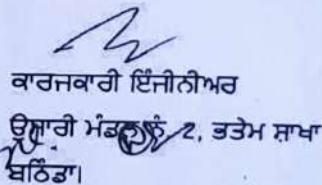 ਕਾਰਜਕਾਰੀ ਇੰਜੀਨੀਅਰ
ਉਸਾਰੀ ਮੰਡਲ ਨੰ 2, ਭਤੇਮ ਸ਼ਾਖਾ
ਬਠਿੰਡਾ।